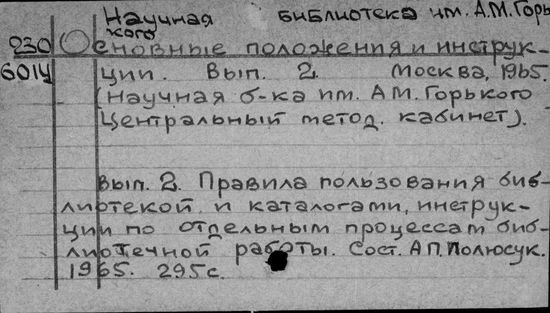 Научная библиотека им. А.М.Горь
кого
230 Основные положения и инструк-
6014 ции. Вып. 2. Москва, 1965.
(Научная б-ка им. А.М.Горького
Центральный метод. кабинет).
Вып. 2. Правила пользования биб-
лиотекой и каталогами, инструк-
ции по отдельным процессам биб-
лиотечной работы. Сост. А.П.Полюсук.
1965. 295с.